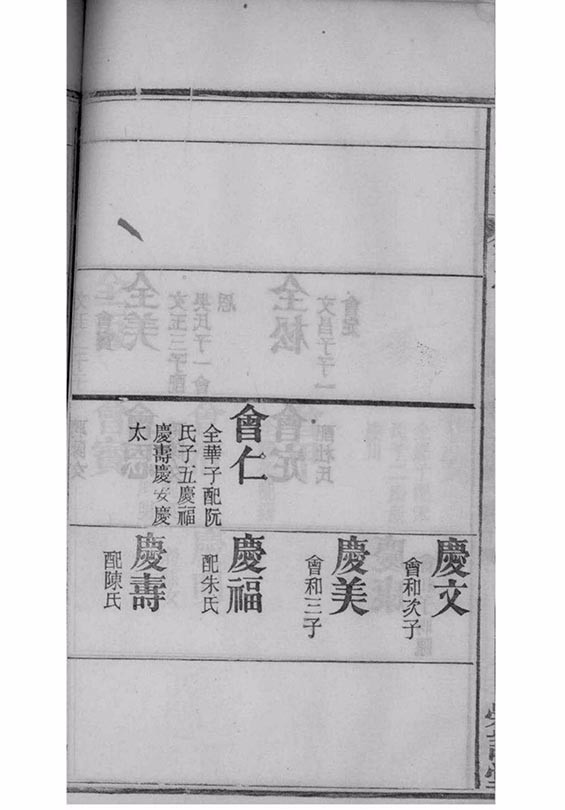 會仁
全華子配阮
氏子五慶福
慶壽慶安慶
太
慶文
會和次子
慶美
會和三子
慶福
配朱氏
慶壽
配陳氏